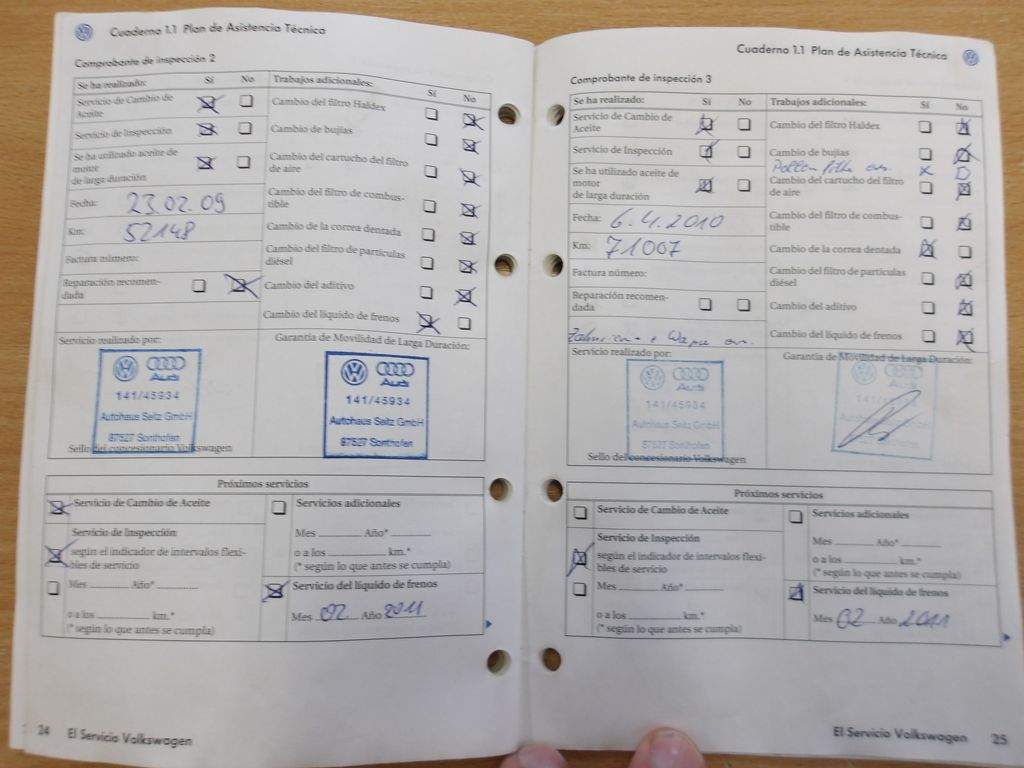 Cuaderno 1.1 Plan de Asistencia Técnica
Comprobante de inspección 2
Se ha realizado: Sí No
Servicio de Cambio de
Aceite
Servicio de Inspección
Se ha utilizado aceite de
motor
de larga duración
Fecha: 23.02.09
Km: 52148
Factura número:
Reparación recomen-
dada
Trabajos adicionales:
Sí No
Cambio del filtro Haldex
Cambio de bujías
Cambio del cartucho del filtro
de aire
Cambio del filtro de combus-
tible
Cambio de la correa dentada
Cambio del filtro de partículas
diésel
Cambio del aditivo
Cambio del líquido de frenos
Servicio realizado por:
Audi
141/45934
Autohaus Seitz GmbH
87527 Sonthofen
Sello del concesionario Volkswagen
Garantía de Movilidad de Larga Duración:
Audi
141/45934
Autohaus Seitz GmbH
87527 Sonthofen
Próximos servicios
Servicio de Cambio de Aceite
Servicio de Inspección
según el indicador de intervalos flexi-
bles de servicio
Mes Año*
o a los km.*
(* según lo que antes se cumpla)
Servicios adicionales
Mes Año*
o a los km.*
(* según lo que antes se cumpla)
Servicio del líquido de frenos
Mes 02 Año 2011
24 El Servicio Volkswagen
Cuaderno 1.1 Plan de Asistencia Técnica
Comprobante de inspección 3
Se ha realizado: Sí No
Servicio de Cambio de
Aceite
Servicio de Inspección
Se ha utilizado aceite de
motor
de larga duración
Fecha: 6.4.2010
Km: 71007
Factura número:
Reparación recomen-
dada
Trabajos adicionales: Sí No
Cambio del filtro Haldex
Cambio de bujías
Cambio del cartucho del filtro
de aire
Cambio del filtro de combus-
tible
Cambio de la correa dentada
Cambio del filtro de partículas
diésel
Cambio del aditivo
Cambio del líquido de frenos
Servicio realizado por:
Audi
141/45934
Autohaus Seitz GmbH
87527 Sonthofen
Sello del concesionario Volkswagen
Garantía de Movilidad de Larga Duración:
Próximos servicios
Servicio de Cambio de Aceite
Servicio de Inspección
según el indicador de intervalos flexi-
bles de servicio
Mes Año*
o a los km.*
(* según lo que antes se cumpla)
Servicios adicionales
Mes Año*
o a los km.*
(* según lo que antes se cumpla)
Servicio del líquido de frenos
Mes 02 Año 2011
El Servicio Volkswagen 25